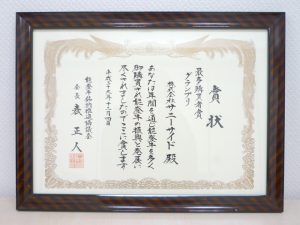 賞状
最多購買者賞
グランプリ
株式会社サニーサイド 殿
あなたは年間を通じ能登牛を多く
御購買され能登牛の振興と発展に
尽くされましたのでここに賞します
平成二十九年十二月四日
能登牛銘柄推進協議会
会長 表 正人